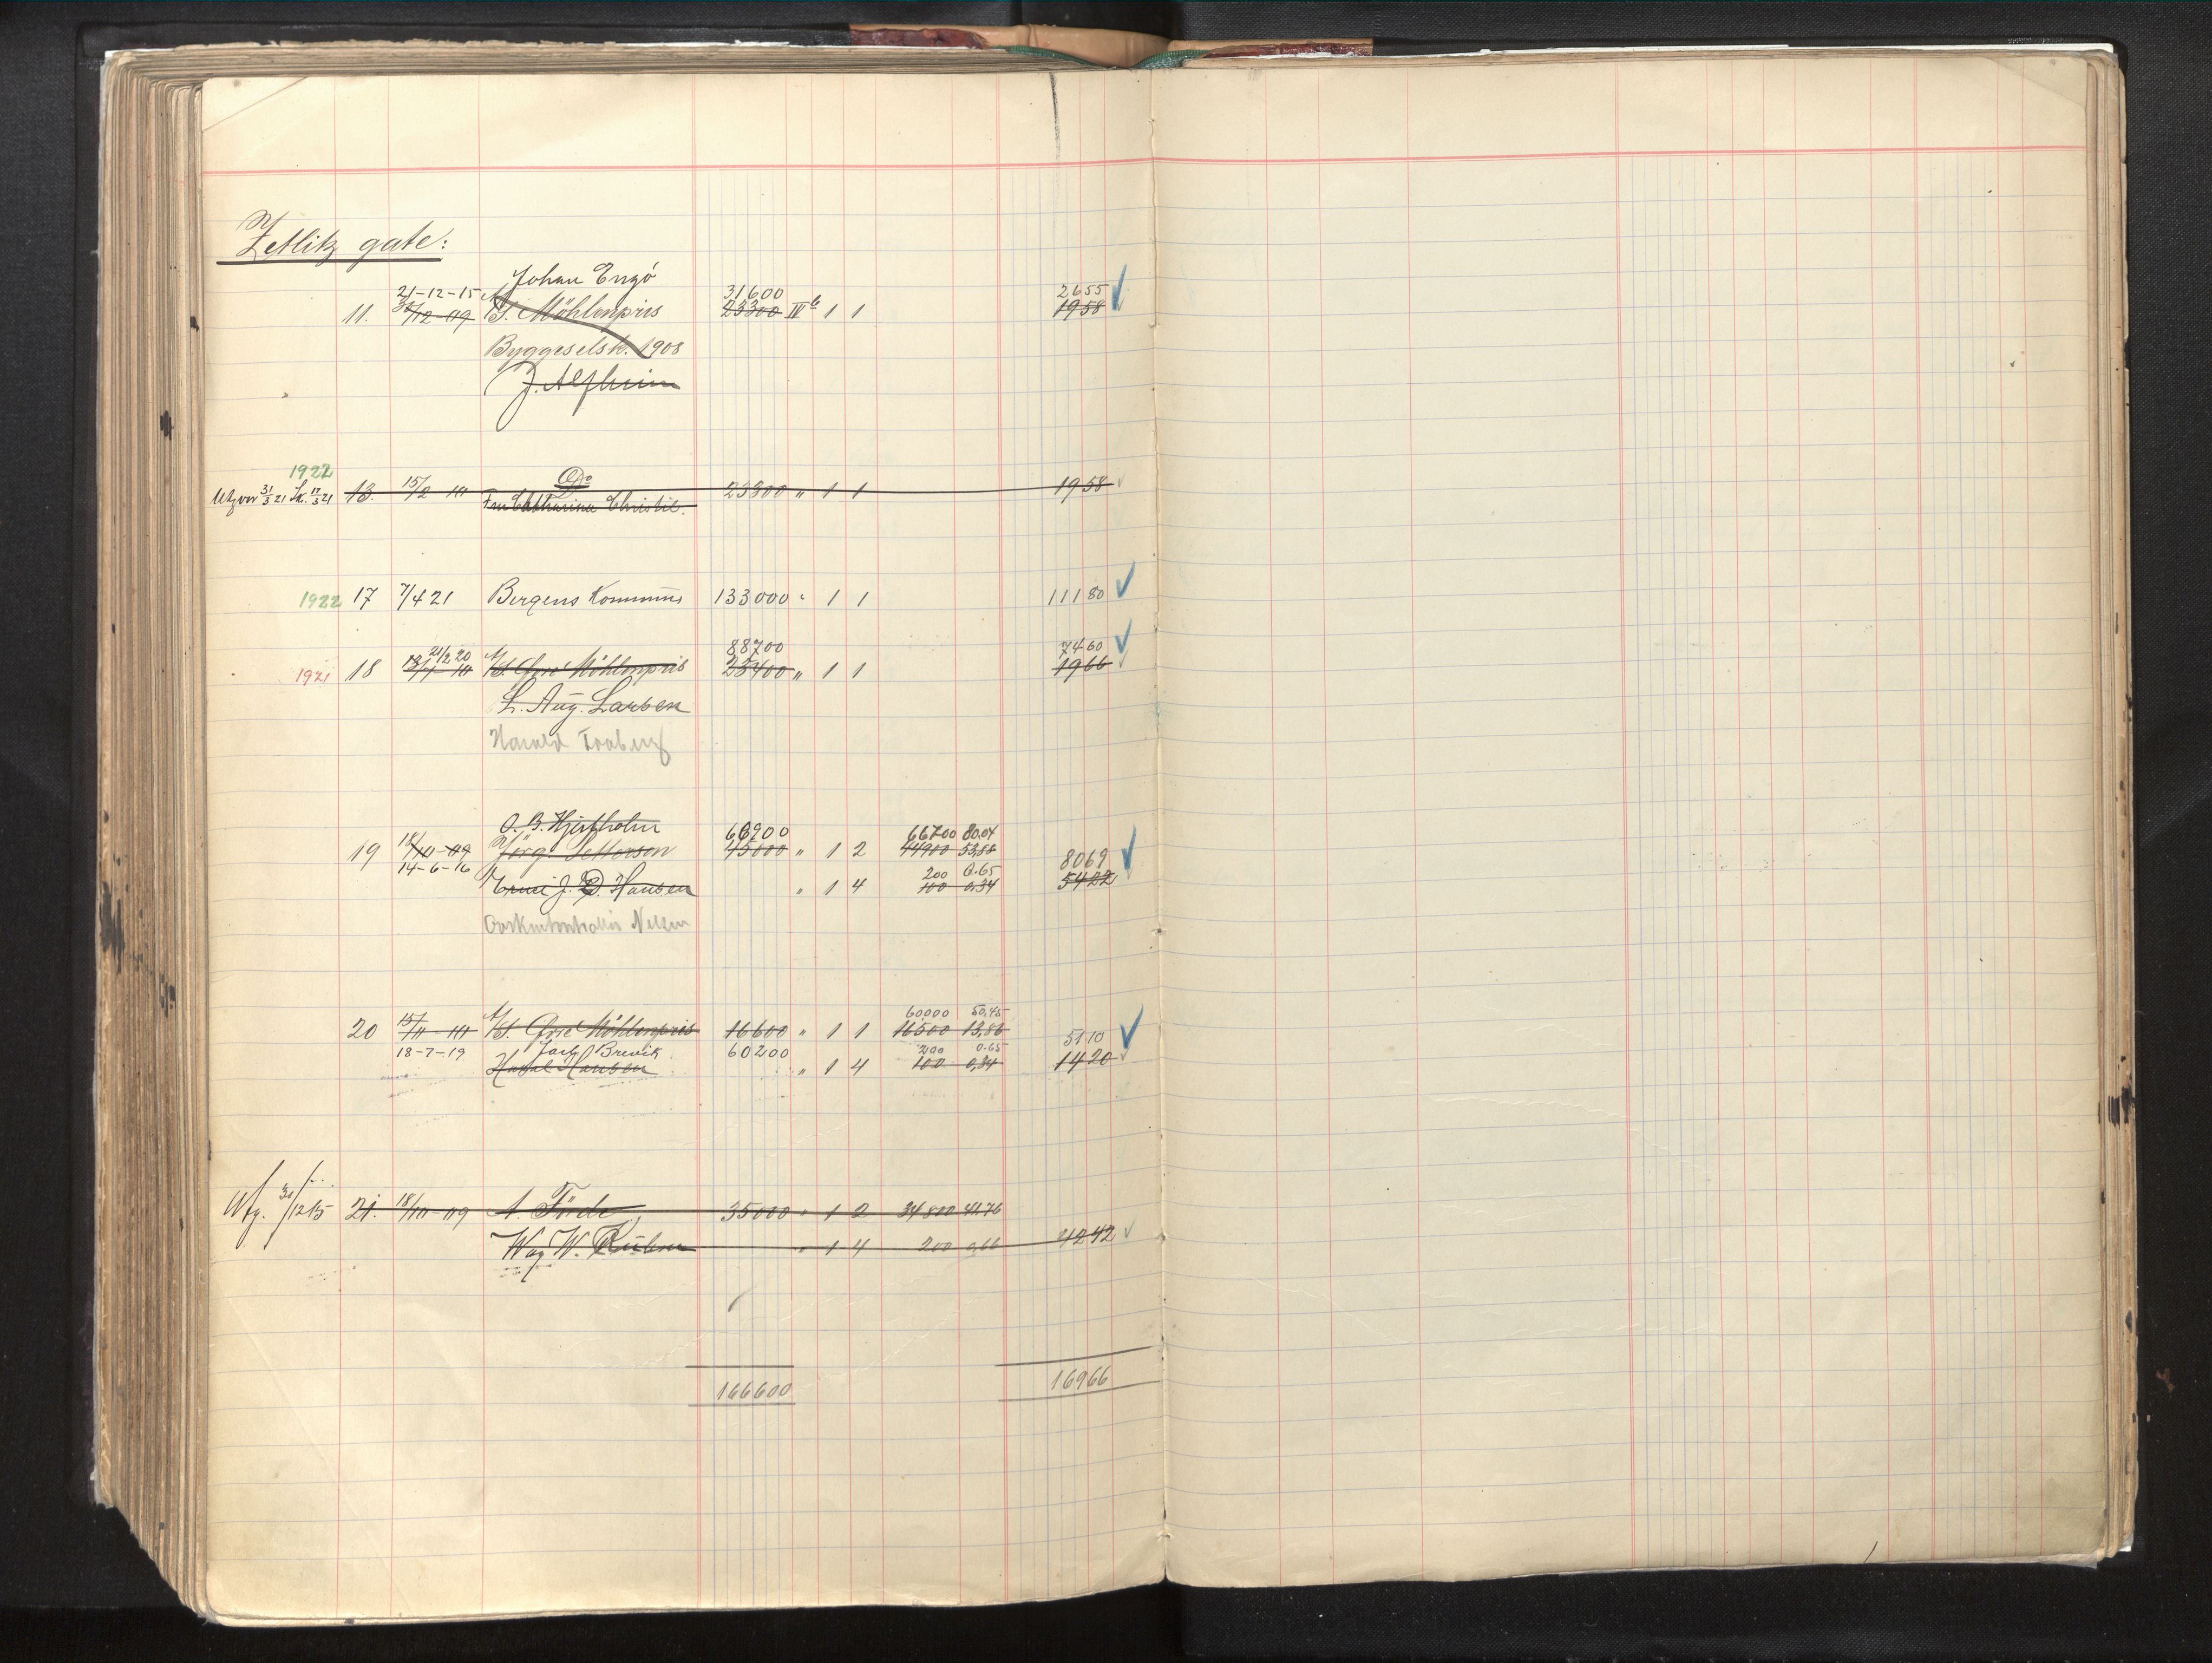 Zetlitz gate:
Johan Engö
21-12-15 31600 2655
11. 31/12-09 A/S. Möhlenpris 23300 IV b 1 1 1958
Byggeselsk. 1908
J. Alfheim
1922
31/3 21 17/3 21 13. 15/2 10 Do 23300 " 1 1 1958
Fru Catharina Christie.
1922 17 7/4 21 Bergens Kommune 133000 " 1 1 11180
21/2 20 88700 7460
1921 18 A/S. Övre Möhlenpris 23400 " 1 1 1966
L. Aug. Larsen
Harald
O. B. Hjertholm 66900 66700 80.04
19 18/10-09 Jörg. Pettersen 45000 " 1 2 44900 53,88 8069
14-6-16 200 0.65
J. D. Hansen " 1 4 100 0,34 5422
Nelsen
60000 50,45
20 15/11-10 A/S. Övre Möhlenpris 16600 " 1 1 16500 13,86 5110
18-7-19 Jacob Brevik 60200 200 0.65
Hansen " 1 4 100 0,34 1420
Utg. 31/12 15 21. 18/10-09 A. Förde 35000 " 1 2 34800 41,76
W. Rubin " 1 4 200 0,66 4242
166600 16966